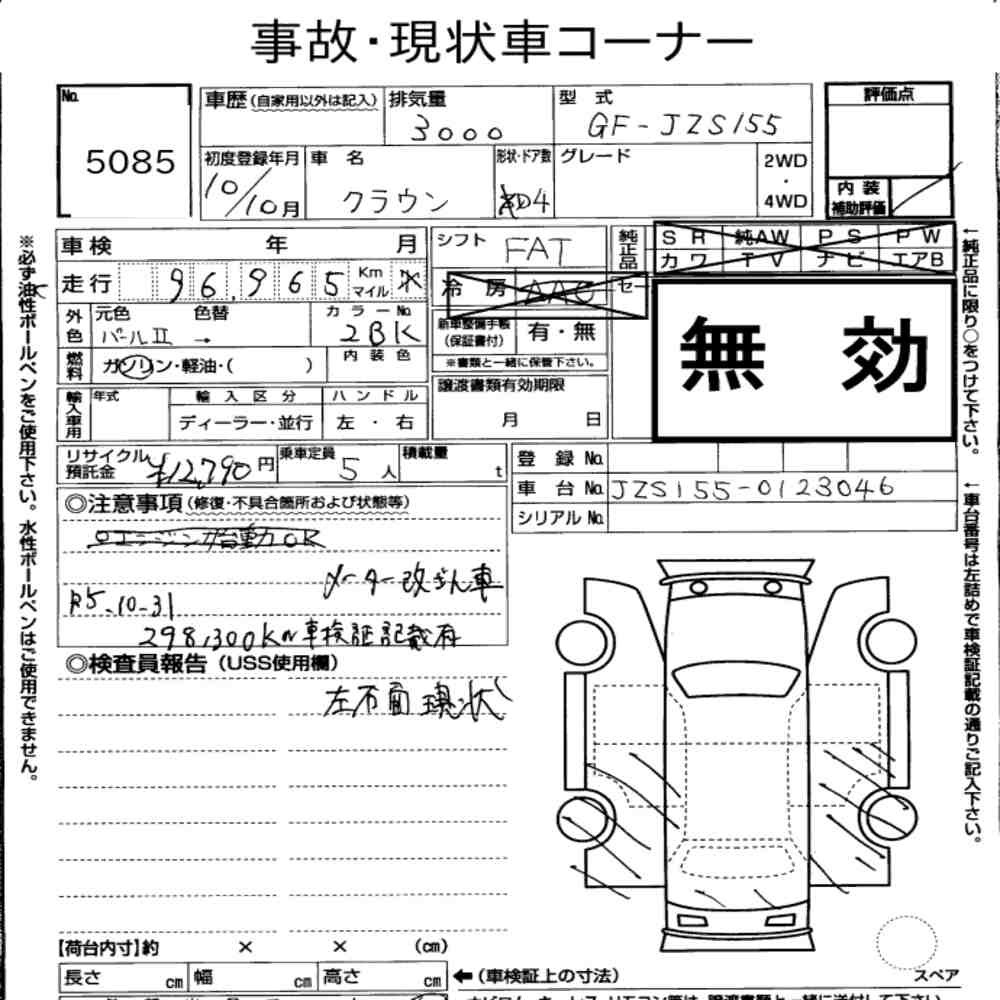 事故・現状車コーナー
No. 5085
車歴(自家用以外は記入)
排気量 3000
型式 GF-JZS155
評価点
初度登録年月 10/10月
車名 クラウン
形状・ドア数 4
グレード
2WD・4WD
内装補助評価
車検 年 月
シフト FAT
純正品
SR 純AW PS PW
カワ TV ナビ エアB
走行 96,965 Km マイル
冷房 AAC
セー
外色 元色 パールⅡ 色替 →
カラーNo. 2BK
新車整備手帳(保証書付) 有・無
※書類と一緒に保管下さい。
無効
燃料 ガソリン・軽油・( )
内装色
譲渡書類有効期限
月 日
輸入車用 年式
輸入区分 ディーラー・並行
ハンドル 左・右
リサイクル預託金 ¥12,790円
乗車定員 5人
積載量 t
登録No.
車台No. JZS155-0123046
シリアルNo.
◎注意事項(修復・不具合箇所および状態等)
メーター改ざん車
R5.10-31
298,300Km車検証記載有
◎検査員報告(USS使用欄)
左不面現状
【荷台内寸】約 × × (cm)
長さ cm 幅 cm 高さ cm
←(車検証上の寸法)
スペア
※必ず油性ボールペンをご使用下さい。水性ボールペンはご使用できません。
←純正品に限り○をつけて下さい。
←車台番号は左詰めで車検証記載の通りご記入下さい。